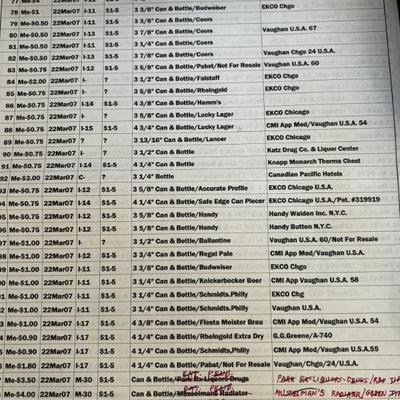 77 Me-$4 22Mar07 I-11
78 Me-$1 22Mar07 I-11 $1-5 3 3/8" Can & Bottle/Budweiser EKCO Chgo
79 Me-$0.50 22Mar07 I-11 $1-5 3 3/8" Can & Bottle/Coors
80 Me-$0.50 22Mar07 I-11 $1-5 3 3/8" Can & Bottle/Coors Vaughan U.S.A. 67
81 Me-$0.50 22Mar07 I-11 $1-5 3 1/4" Can & Bottle/Coors
82 Me-$0.50 22Mar07 I-11 $1-5 3 3/8" Can & Bottle/Coors Vaughan Chgo 24 U.S.A.
83 Me-$0.75 22Mar07 I-12 $1-5 3 5/8" Can & Bottle/Pabst/Not For Resale Vaughan U.S.A. 60
84 Me-$2.00 22Mar07 I- ? 3 1/2" Can & Bottle/Falstaff EKCO Chgo
85 Me-$0.75 22Mar07 I- ? 3 5/8" Can & Bottle/Rheingold EKCO Chgo
86 Me-$0.75 22Mar07 I-14 $1-5 4 3/8" Can & Bottle/Hamm's
87 Me-$0.75 22Mar07 I- ? 3 5/8" Can & Bottle/Lucky Lager EKCO Chicago
88 Me-$0.75 22Mar07 I-15 $1-5 4 3/4" Can & Bottle/Lucky Lager CMI App Mod/Vaughan U.S.A. 54
89 Me-$0.00 22Mar07 ? ? 3 13/16" Can & Bottle/Lancer EKCO Chicago
90 Me-$0.75 22Mar07 I- ? 3 1/2" Can & Bottle Katz Drug Co. & Liquor Center
91 Me-$0.75 22Mar07 I-14 $1-5 4 1/4" Can & Bottle Knapp Monarch Therma Chest
92 Me-$3.00 22Mar07 C- ? 3 1/4" Bottle Canadian Pacific Hotels
93 Me-$0.75 22Mar07 I-12 $1-5 3 5/8" Can & Bottle/Accurate Profile EKCO Chicago U.S.A.
94 Me-$0.75 22Mar07 I-14 $1-5 4 1/4" Can & Bottle/Safe Edge Can Piecer EKCO Chicago U.S.A./Pat. #319919
95 Me-$0.75 22Mar07 I-12 $1-5 3 5/8" Can & Bottle/Handy Handy Walden Inc. N.Y.C.
96 Me-$0.75 22Mar07 I-12 $1-5 3 5/8" Can & Bottle/Handy Handy Button N.Y.C.
97 Me-$1.00 22Mar07 I- ? 3 1/2" Can & Bottle/Ballantine Vaughan U.S.A. 60/Not For Resale
98 Me-$1.00 22Mar07 I-11 $1-5 3 3/4" Can & Bottle/Regal Pale CMI App Mod/Vaughan, U.S.A.
99 Me-$1.00 22Mar07 I-11 $1-5 3 3/8" Can & Bottle/Budweiser EKCO Chgo
Me-$1.00 22Mar07 I-11 $1-5 3 1/4" Can & Bottle/Knickerbocker Beer CMI App Vaughan U.S.A. 58
Me-$1.00 22Mar07 I-11 $1-5 3 1/4" Can & Bottle/Schmidts.Philly EKCO Chg
Me-$1.00 22Mar07 I-11 $1-5 3 1/4" Can & Bottle/Schmidts.Philly Vaughan U.S.A.
Me-$1.00 22Mar07 I-17 $1-5 4 3/8" Can & Bottle/Fiesta Meister Brau CMI App Mod/Vaughan U.S.A. 54
Me-$0.90 22Mar07 I-17 $1-5 4 1/4" Can & Bottle/Rheingold Extra Dry G.G.Greene/A-740
Me-$0.90 22Mar07 I-17 $1-5 4 1/4" Can & Bottle/Schmidts.Philly CMI App Mod/Vaughan U.S.A.55
Me-$1.80 22Mar07 I-17 $1-5 4 1/4" Can & Bottle/Pabst/Not For Resale Vaughan/Chgo/24/U.S.A.
Me-$3.50 22Mar07 M-30 $1-5 Can & Bottle/Park Rx Liquors Drugs PARK RX-LIQUORS-DRUGS
Me-$4.00 22Mar07 M-30 $1-5 Can & Bottle/Musselman Radiator MUSSELMAN'S RADIATOR